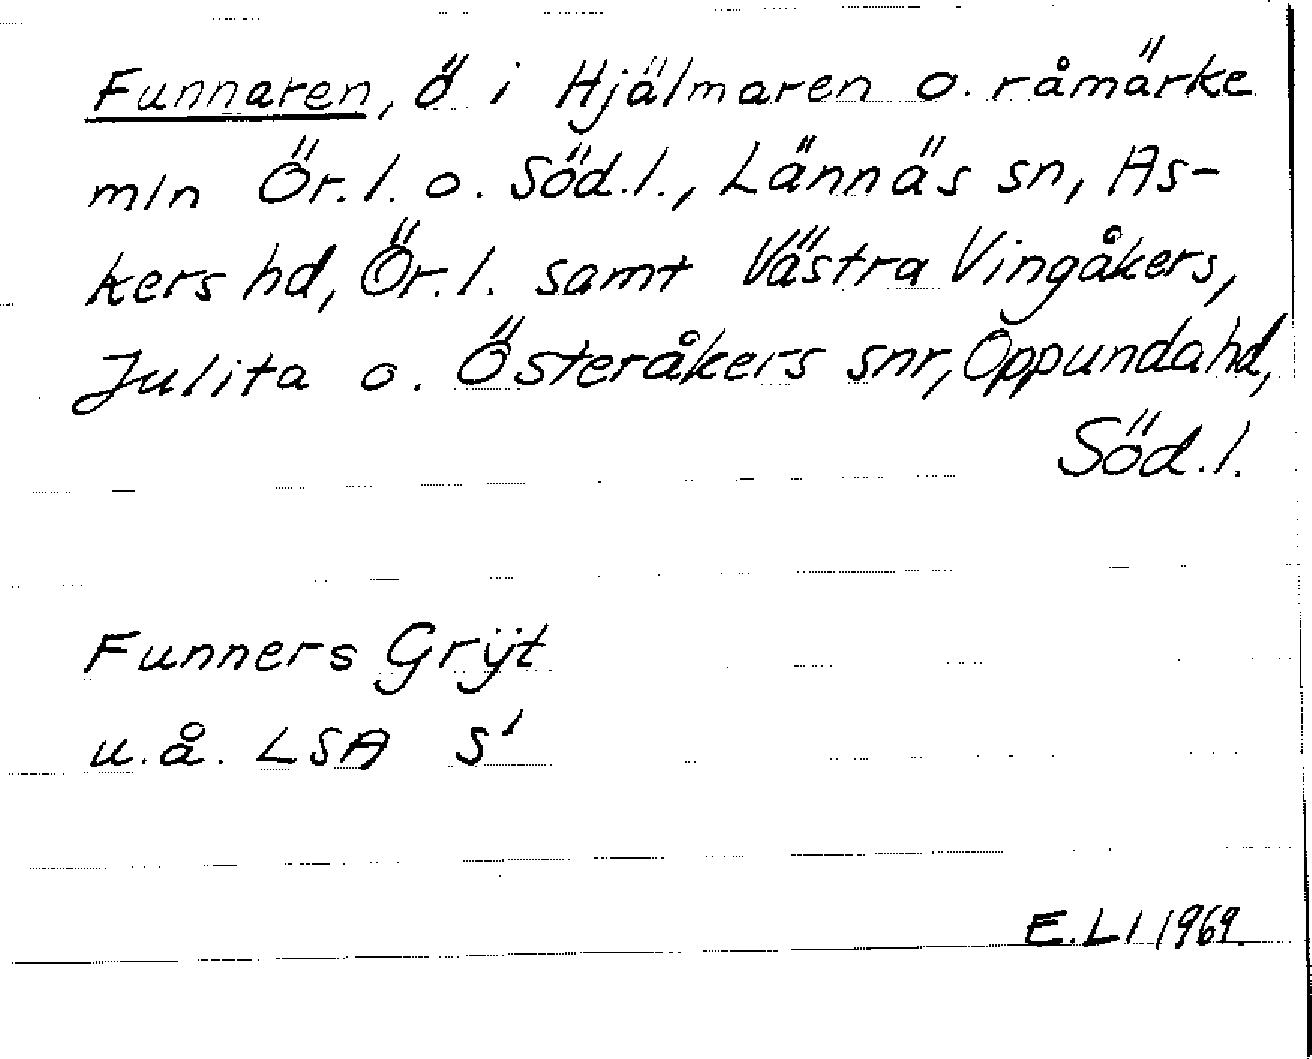 Funnaren, ö i Hjälmaren o. råmärke
mln Ör.l. o. Söd.l., Lännäs sn, As-
kers hd, Ör.l. samt Västra Vingåkers,
Julita o. Österåkers snr, Oppunda hd,
Söd.l.
Funners Grÿt
u.å. LSA S¹
E.Ll 1969.